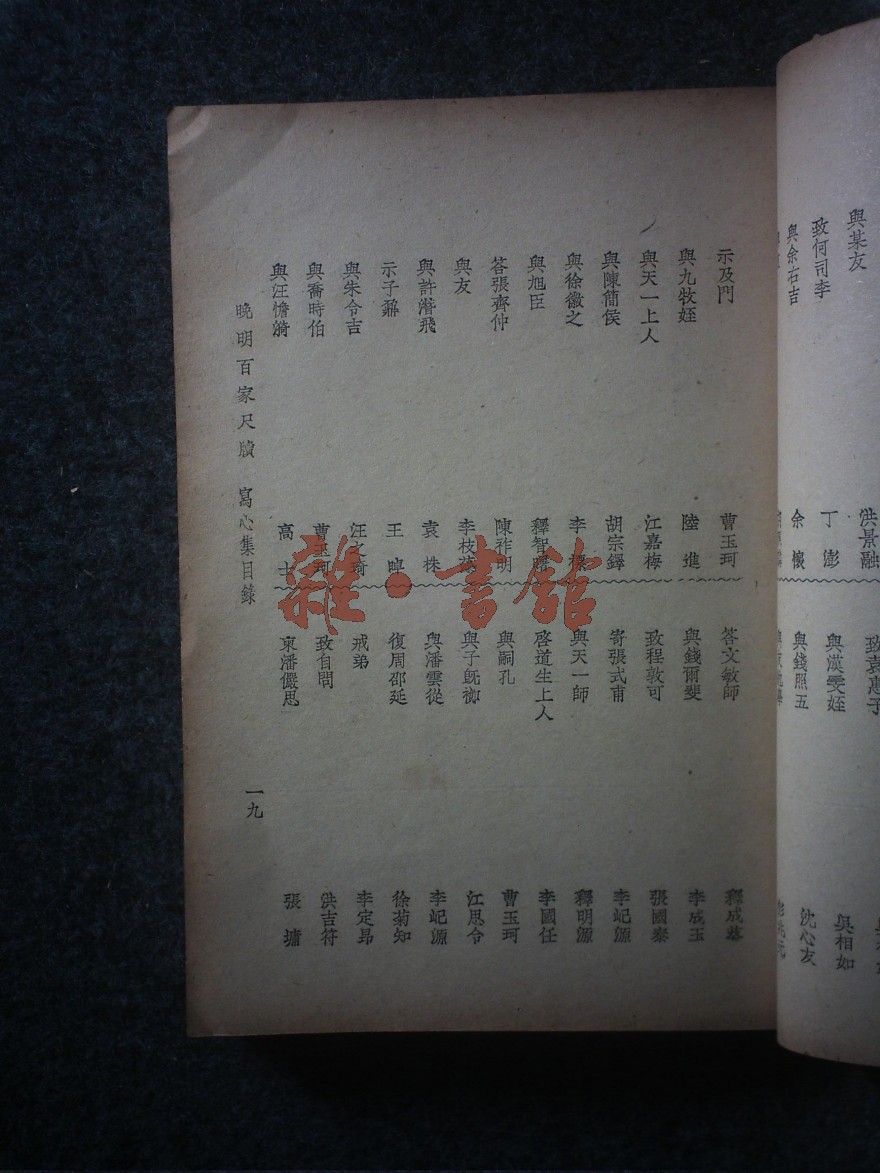 與某友 洪景融
致何司李 丁澎
與余右吉 余懷
致袁惠子
與漢雯姪 吳相如
與錢照五 沈心友
示及門 曹玉珂
與九牧姪 陸進
與天一上人 江嘉梅
與陳簡侯 胡宗鐸
與徐徽之 李
與旭臣 釋智
答張齊仲 陳祚明
與友 李枝
與許潛飛 袁株
示子鼐 王
與朱令吉 汪文
與喬時伯 曹玉珂
與汪憺漪 高士
答文敏師 釋成
與錢爾斐 李成玉
致程敦可 張國泰
寄張式甫 李屺源
與天一師 釋明源
啓道生上人 李國任
與嗣孔 曹玉珂
與子旣衪 江思令
與潘雲從 李屺源
復周邵延 徐菊知
戒弟 李定昂
致自問 洪吉符
柬潘儼思 張墉
晚明百家尺牘 寫心集目錄 一九
雜·書館